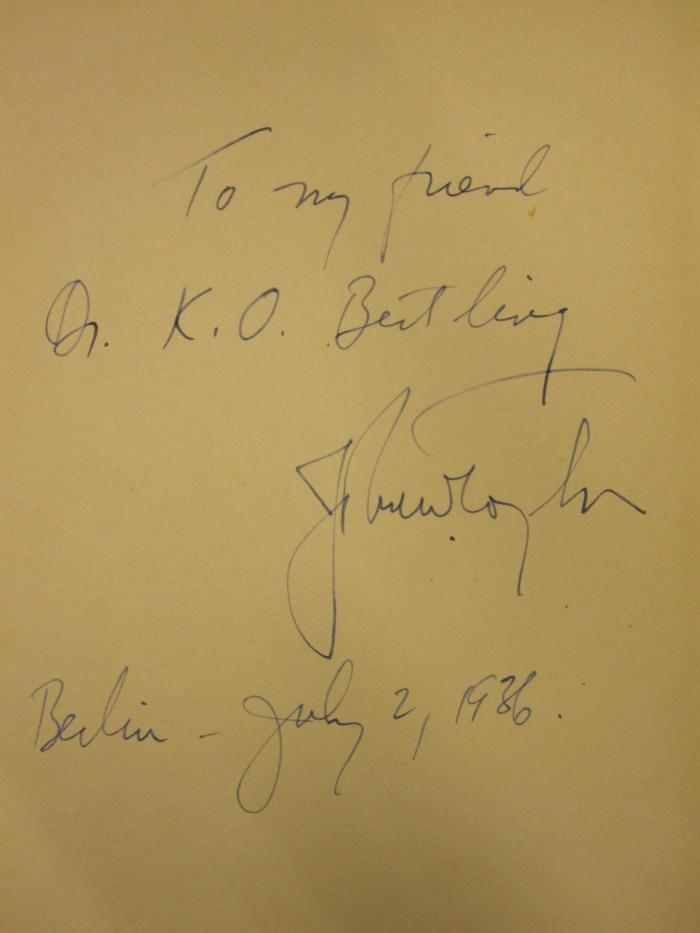 To my friend
Dr. K. O. Bertling
John W. Taylor
Berlin - July 2, 1936.